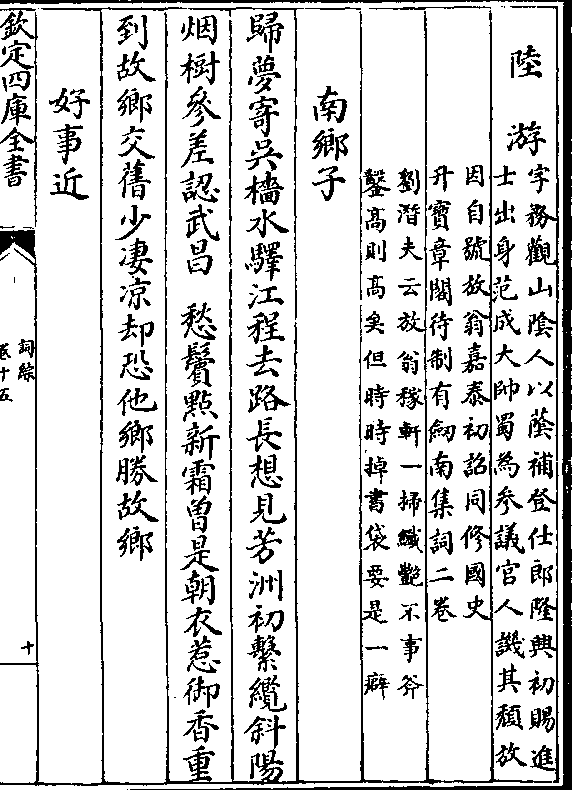 陸游字務觀山陰人以蔭補登仕郎隆興初賜進
士出身范成大帥蜀為參議官人譏其頹放
因自號放翁嘉泰初詔同修國史
升寶章閣待制有劒南集詞二卷
劉潛夫云放翁稼軒一掃纖艷不事斧
鑿高則高矣但時時掉書袋要是一癖
南鄉子
歸夢寄吳檣水驛江程去路長想見芳洲初繫纜斜陽
烟樹參差認武昌　愁鬢點新霜曾是朝衣惹御香重
到故鄉交舊少凄凉却恐他鄉勝故鄉
好事近
欽定四庫全書
詞綜
卷十五
十